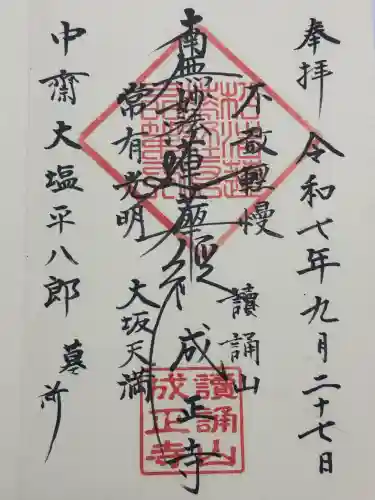 奉拝
令和七年九月二十七日
不敢軽慢
讀誦山
南無妙法蓮華経
成正寺
常有光明
大坂天満
中齋大塩平八郎
墓所
讀誦山
成正寺